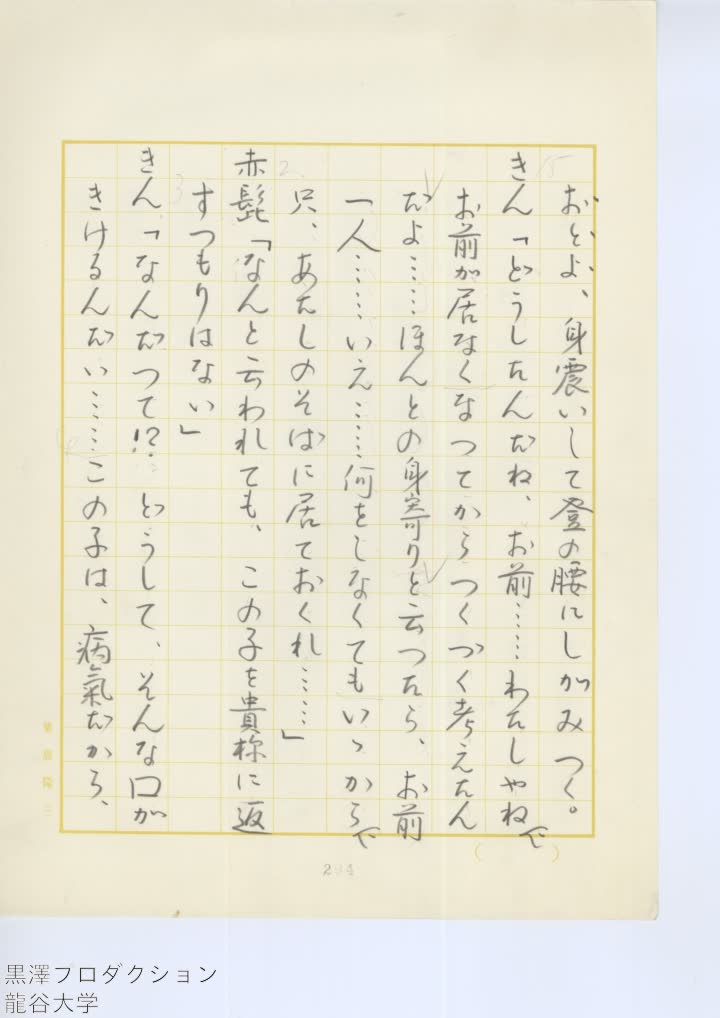 おとよ、身震いして登の腰にしがみつく。
きん「どうしたんだね、お前……わたしやね
お前が居なくなつてからつくづく考えたん
だよ……ほんとの身寄りと云つたら、お前
一人……いえ……何をしなくてもいゝから
只、あたしのそばに居ておくれ……」
赤髭「なんと云われても、この子を貴様に返
すつもりはない」
きん「なんだつて!? どうして、そんな口が
きけるんだい……この子は、病氣だから、
294
黒澤プロダクション
龍谷大学